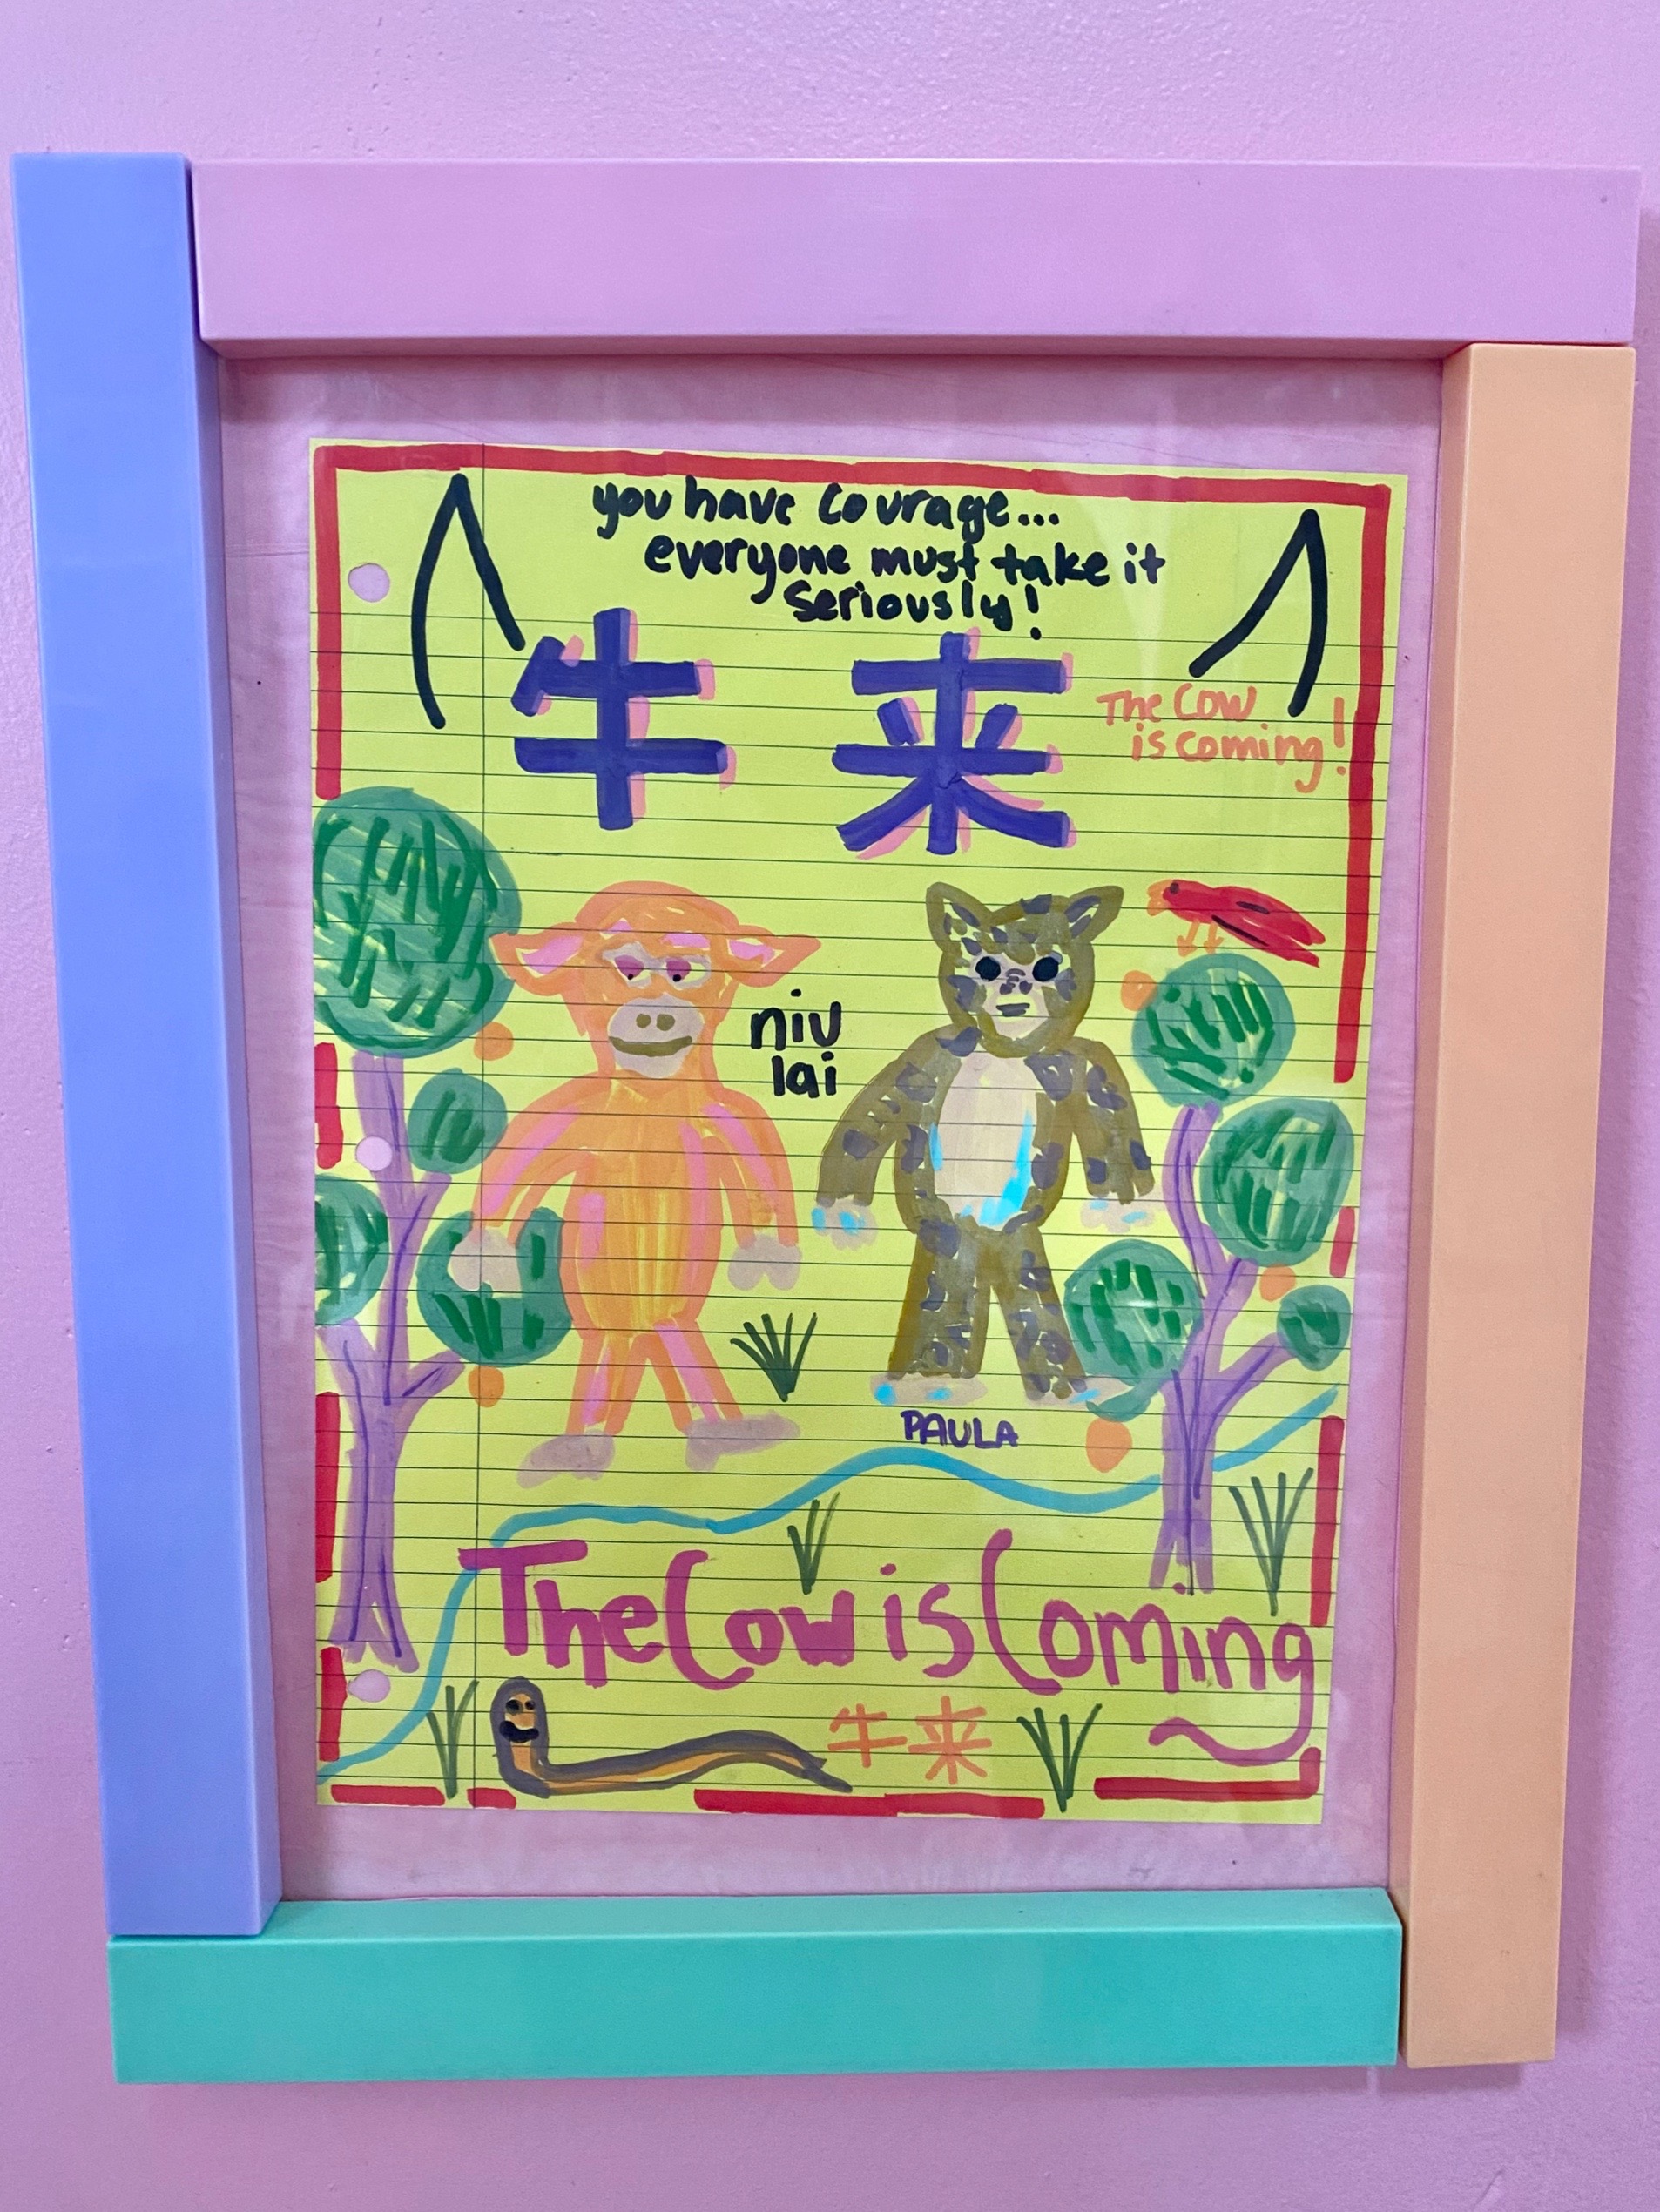 you have courage...
everyone must take it
seriously!
牛 来
The Cow
is coming!
niu
lai
PAULA
The Cow is Coming
牛来